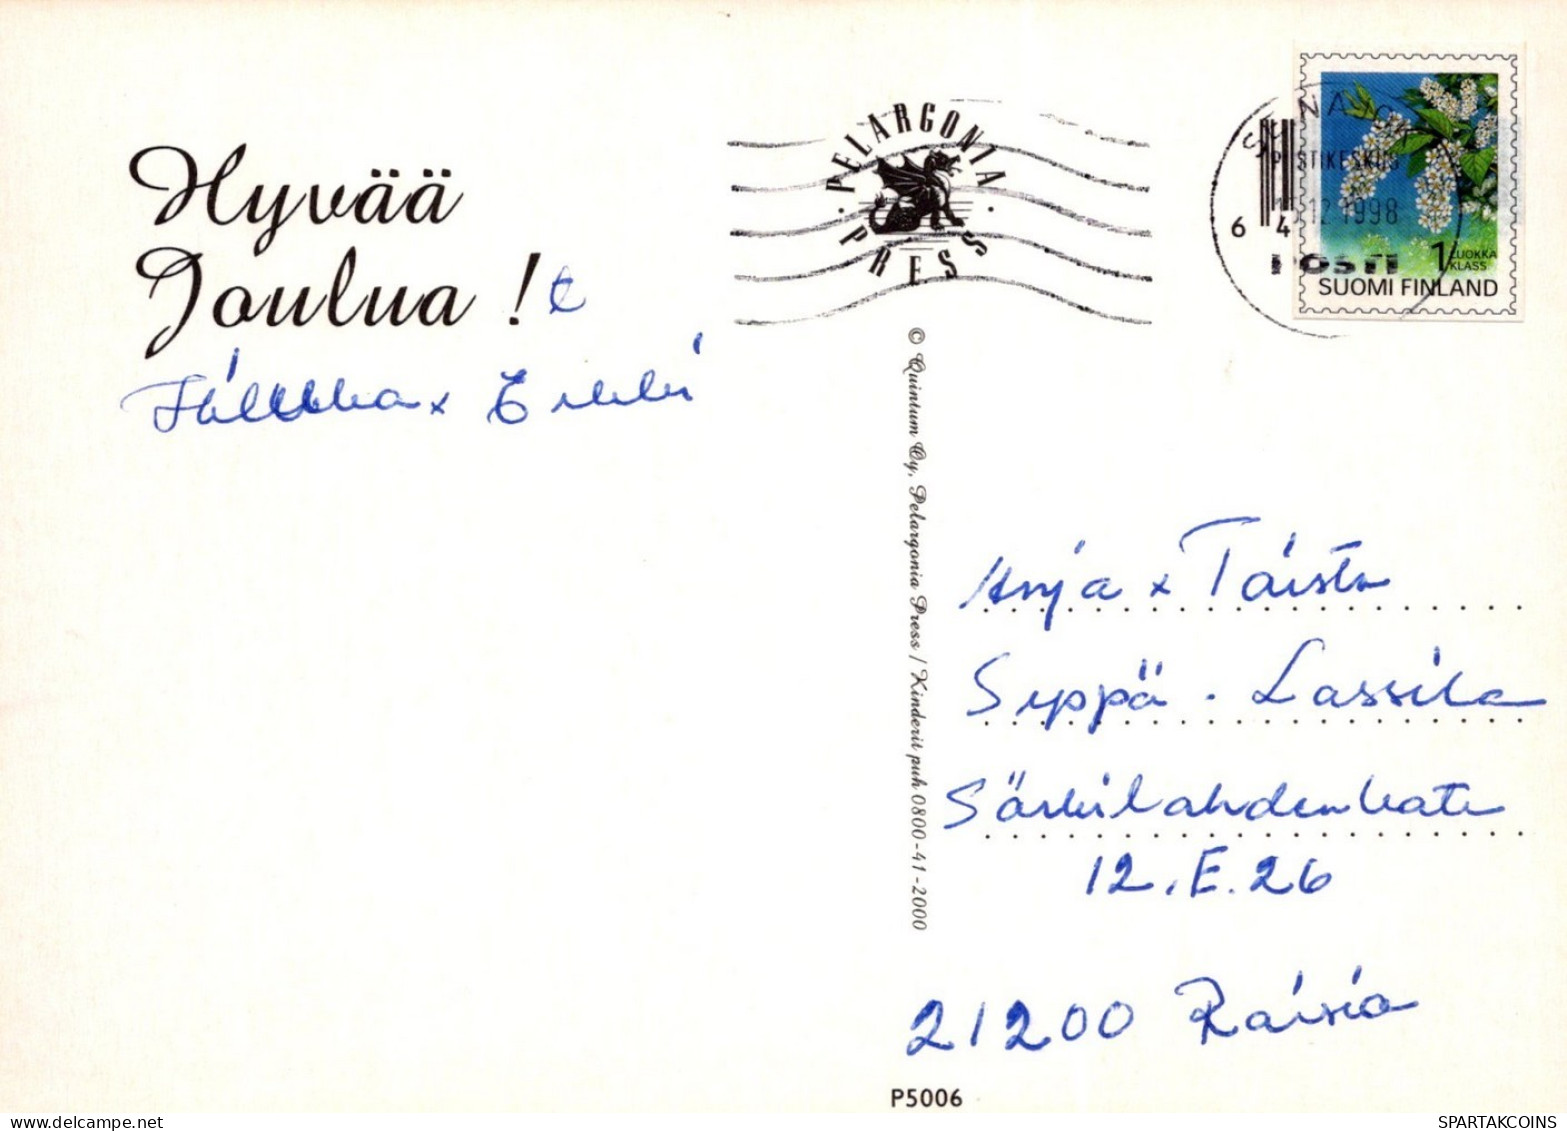 Hyvää
Joulua ! t
x Erkki
PELARGONIA
PRESS
POSTIKESKUS
12.1998
6 4
POSTI
1 LUOKKA
KLASS
SUOMI FINLAND
© Quintum Oy, Pelargonia Press / Kinderit puh 0800-41-2000
Anja x Taisto
Seppä - Lassila
Särkilahdenkatu
12. E. 26
21200 Raisio
P5006
SPARTAKCOINS
www.delcampe.net